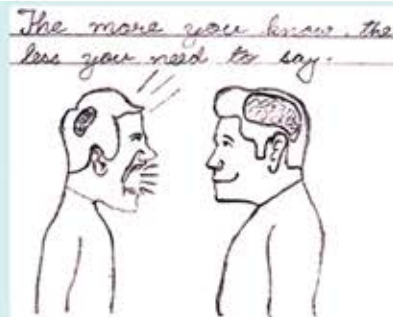 The more you know, the
less you need to say.